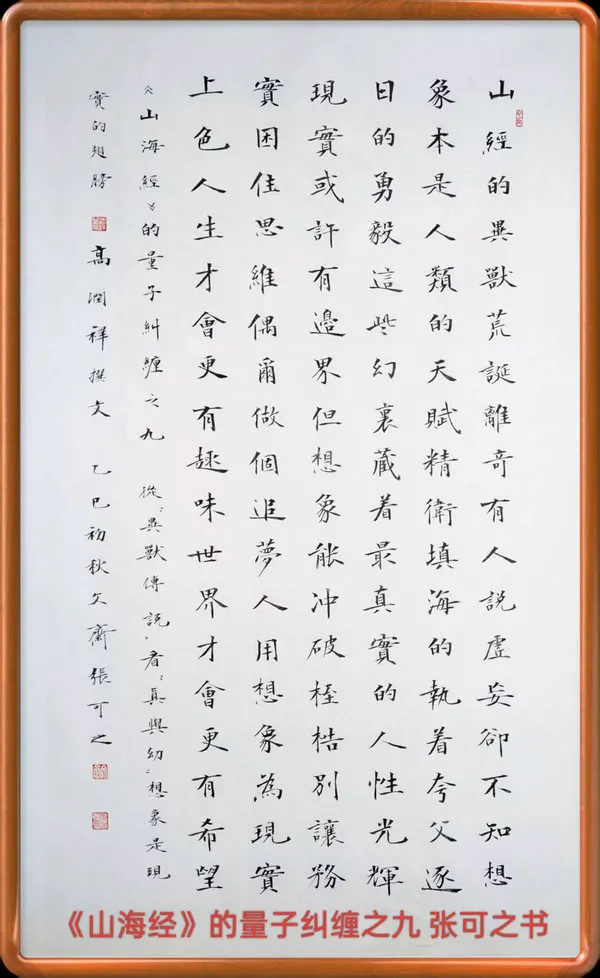 山經的異獸荒誕離奇有人說虛妄卻不知想
象本是人類的天賦精衛填海的執着夸父逐
日的勇毅這些幻裏藏着最真實的人性光輝
現實或許有邊界但想象能冲破桎梏別讓務
實困住思維偶爾做個追夢人用想象為現實
上色人生才會更有趣味世界才會更有希望
《山海經》的量子糾纏之九 從“異獸傳說”看“真與幻”想象是現
實的翅膀 高潤祥撰文 乙巳初秋文齋張可之
《山海经》的量子纠缠之九 张可之书